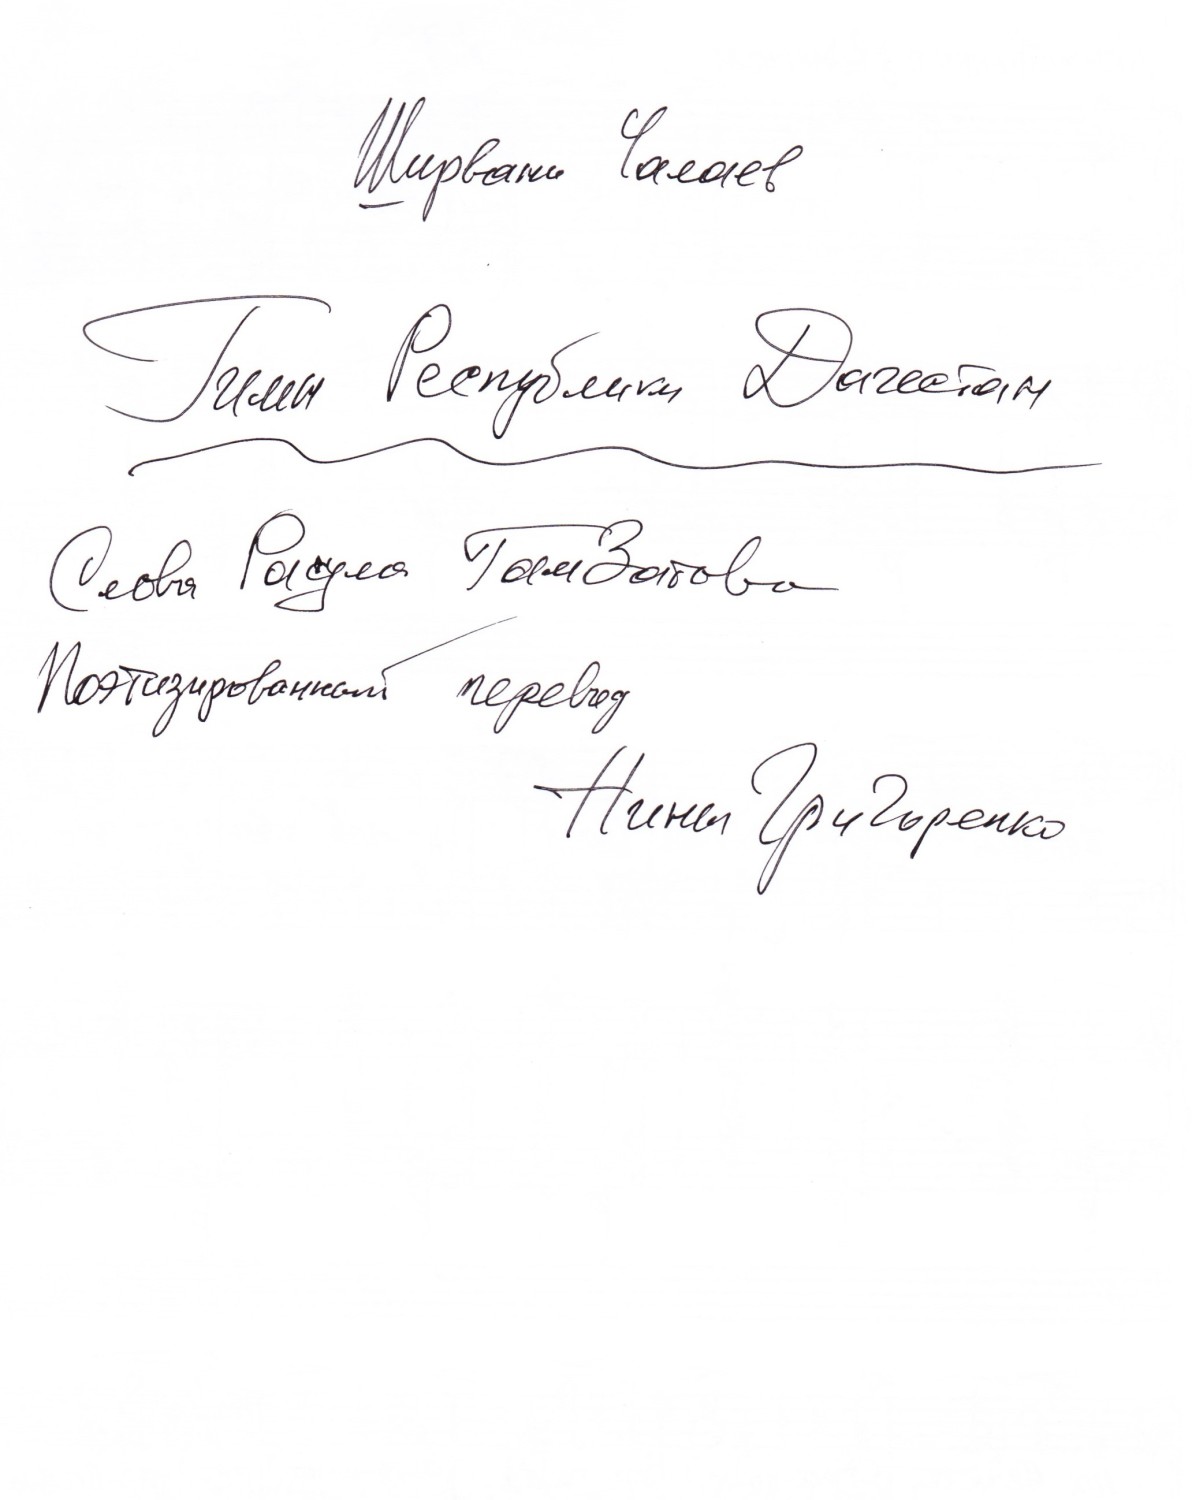 Ширвани Чалаев
Гимн Республики Дагестан
Слова Расула ГамЗатова
Поэтизированный перевод
Нины Григоренко